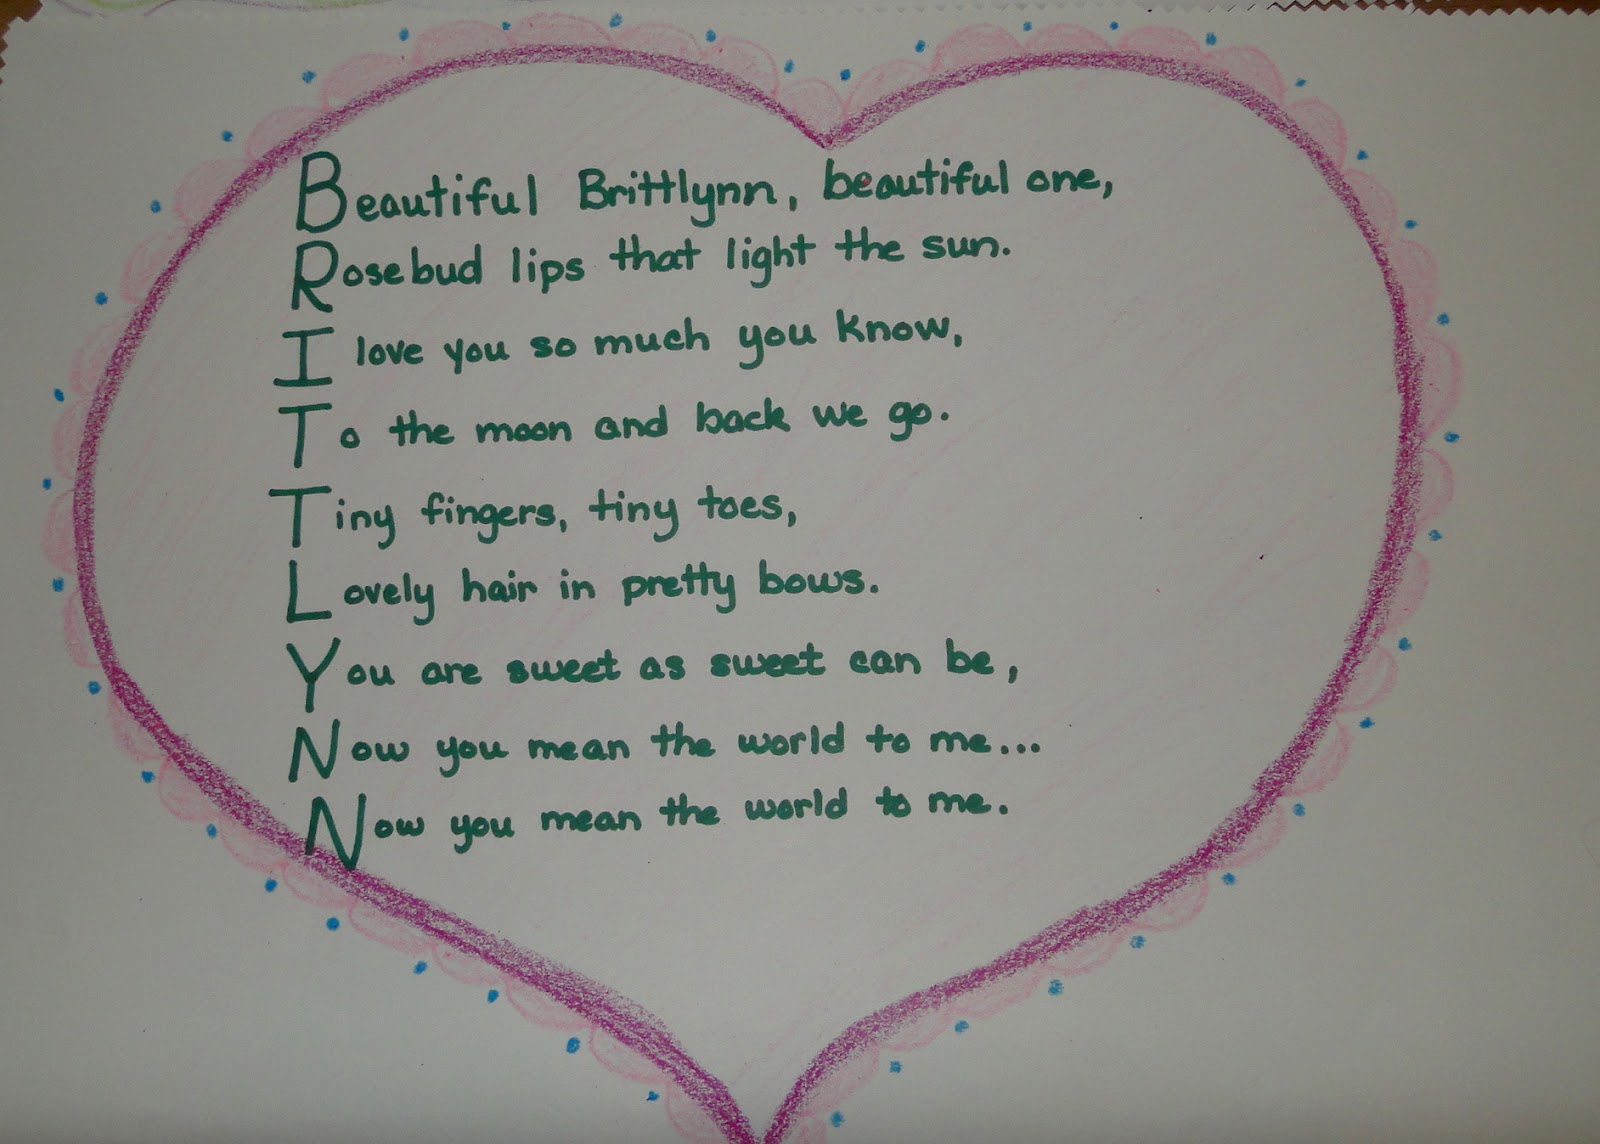 Beautiful Brittlynn, beautiful one,
Rosebud lips that light the sun.
I love you so much you know,
To the moon and back we go.
Tiny fingers, tiny toes,
Lovely hair in pretty bows.
You are sweet as sweet can be,
Now you mean the world to me...
Now you mean the world to me.